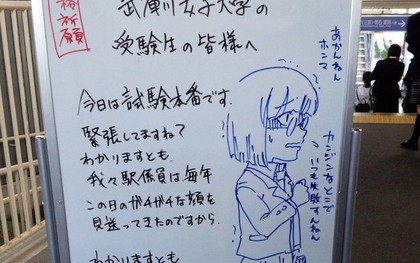 合格祈願
武庫川女子大学の
受験生の皆様へ
今日は試験本番です.
緊張してますね?
わかりますとも.
我々駅係員は毎年
この日のガチガチな顔を
見送ってきたのですから.
わかりますとも
あかんねん
ホンマ
カンジンなとこで
いつも失敗すんねん